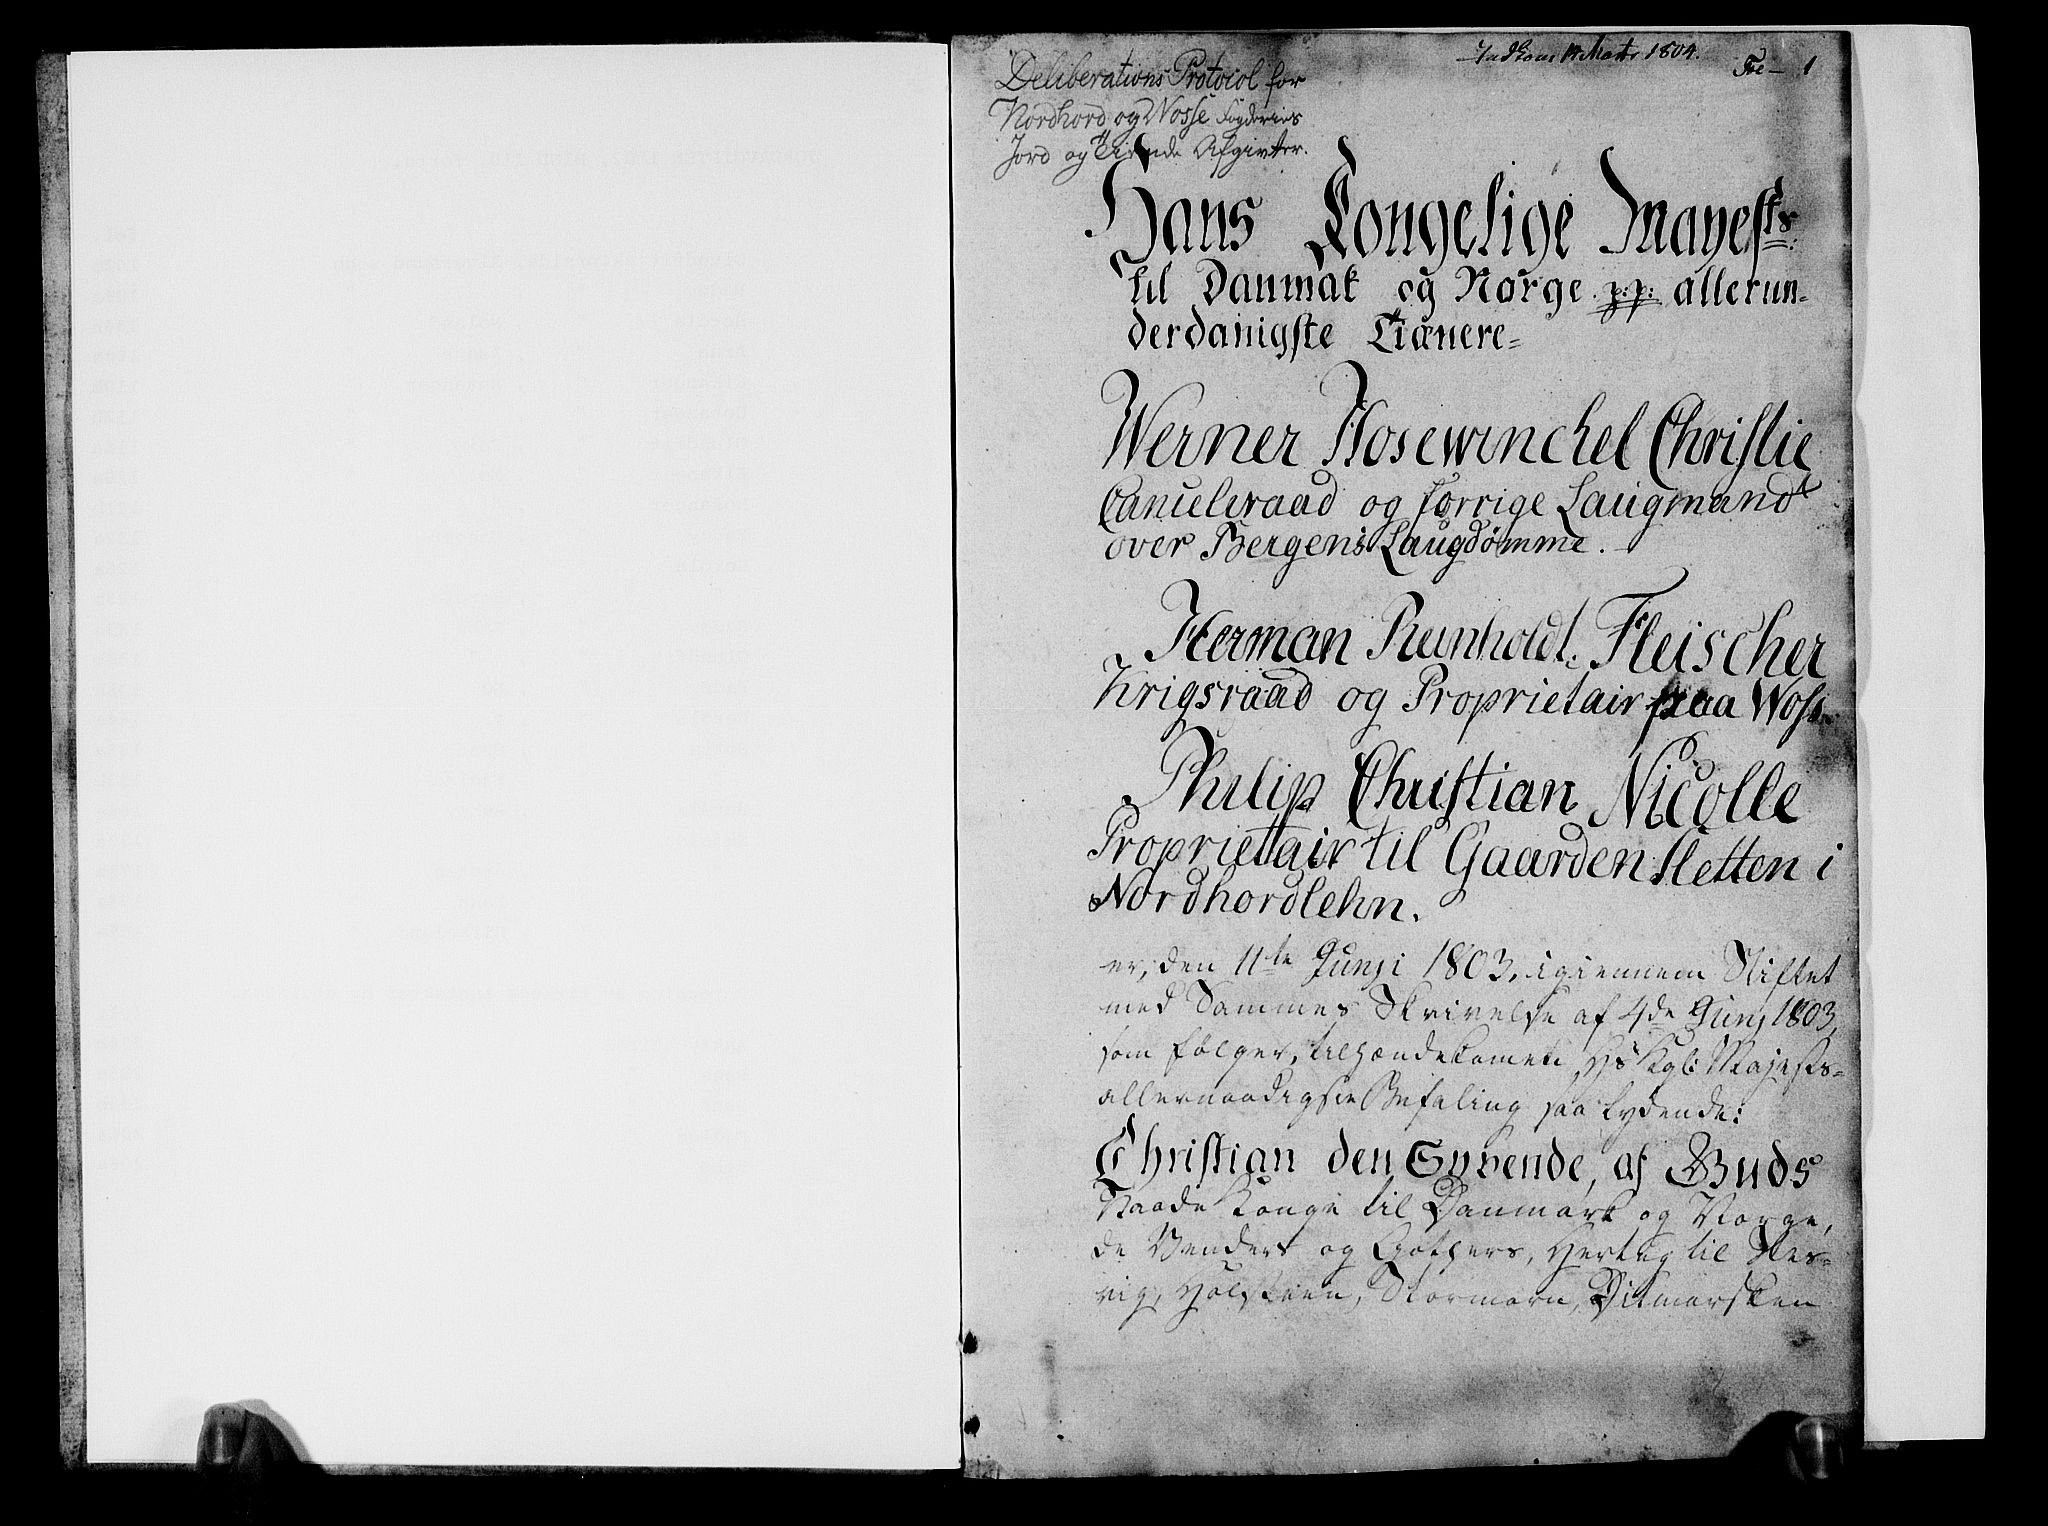 Indkom 14 Marts 1804.
Fol– 1
Deliberations Protocol for
Nordhord og Vosse Fogderies
Jord og Tiende Afgivter.
Hans Kongelige Mayests:
til Danmak og Norge p:p: allerun-
derdanigste Tiænere-
Werner Hosewinchel Christie
Cancelieraad og forrige Laugmand
over Bergens Laugdømme.
Herman Reinholdt Fleischer
Krigsraad og Proprietair paa Woss.
Philip Christian Nicolle
Propriettair til Gaarden Sletten i
Nordhordlehn.
er, den 11te Junji 1803, igiennem Stiftet
med Sammes Skrivelse af 4de Junj 1803,
som følger, tilhændekommen Hs Kgl: Majests-
allernaadigste Befaling saa lydende:
Christian den Syvende, af Guds
Naade Konge til Danmark og Norge,
de Venders og Gothers, Hertug til Sles-
vig, Holsteen, Stormarn, Ditmarsken